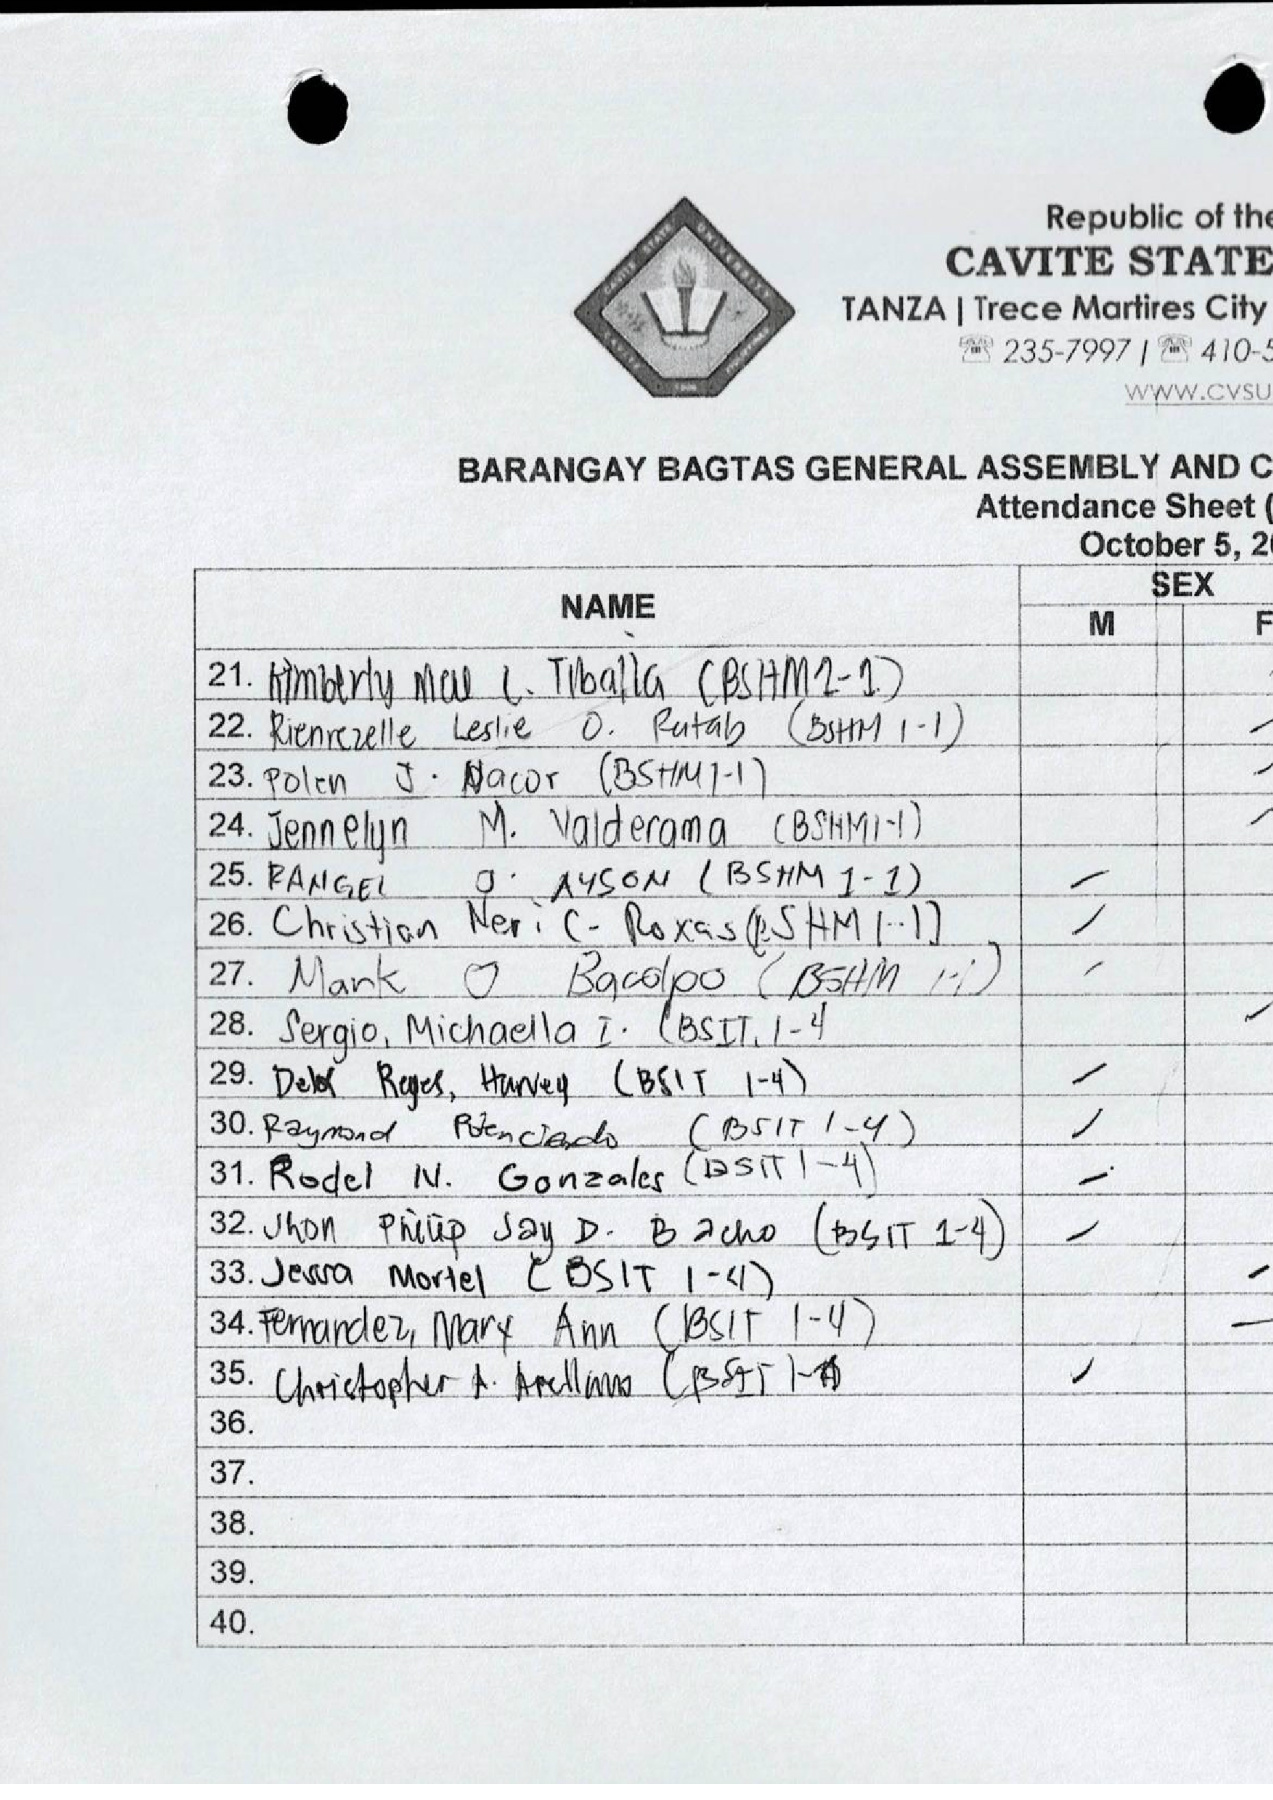 CAVITE STATE UNIVERSITY
CAVITE
PHILIPPINES
1906
Republic of the
CAVITE STATE
TANZA | Trece Martires City
☏ 235-7997 | ☏ 410-5
www.cvsu
BARANGAY BAGTAS GENERAL ASSEMBLY AND C
Attendance Sheet (
October 5, 20
NAME SEX
M F
21. Kimberly Mae L. Tiballa (BSHM 1-1)
22. Rienrezelle Leslie O. Rutab (BSHM 1-1)
23. Polen J. Nacor (BSHM 1-1)
24. Jennelyn M. Valderama (BSHM1-1)
25. RANGEL O. AYSON (BSHM 1-1)
26. Christian Neri C- Roxas (BSHM 1-1)
27. Mark O Bacolpo (BSHM 1-1)
28. Sergio, Michaella I. (BSIT. 1-4
29. Delos Reyes, Harvey (BSIT 1-4)
30. Raymond Potenciando (BSIT 1-4)
31. Rodel N. Gonzales (BSIT 1-4)
32. Jhon Philip Jay D. Bacho (BSIT 1-4)
33. Jessa Mortel (BSIT 1-4)
34. Fernandez, Mary Ann (BSIT 1-4)
35. Christopher A. Arellano (BSIT 1-4)
36.
37.
38.
39.
40.